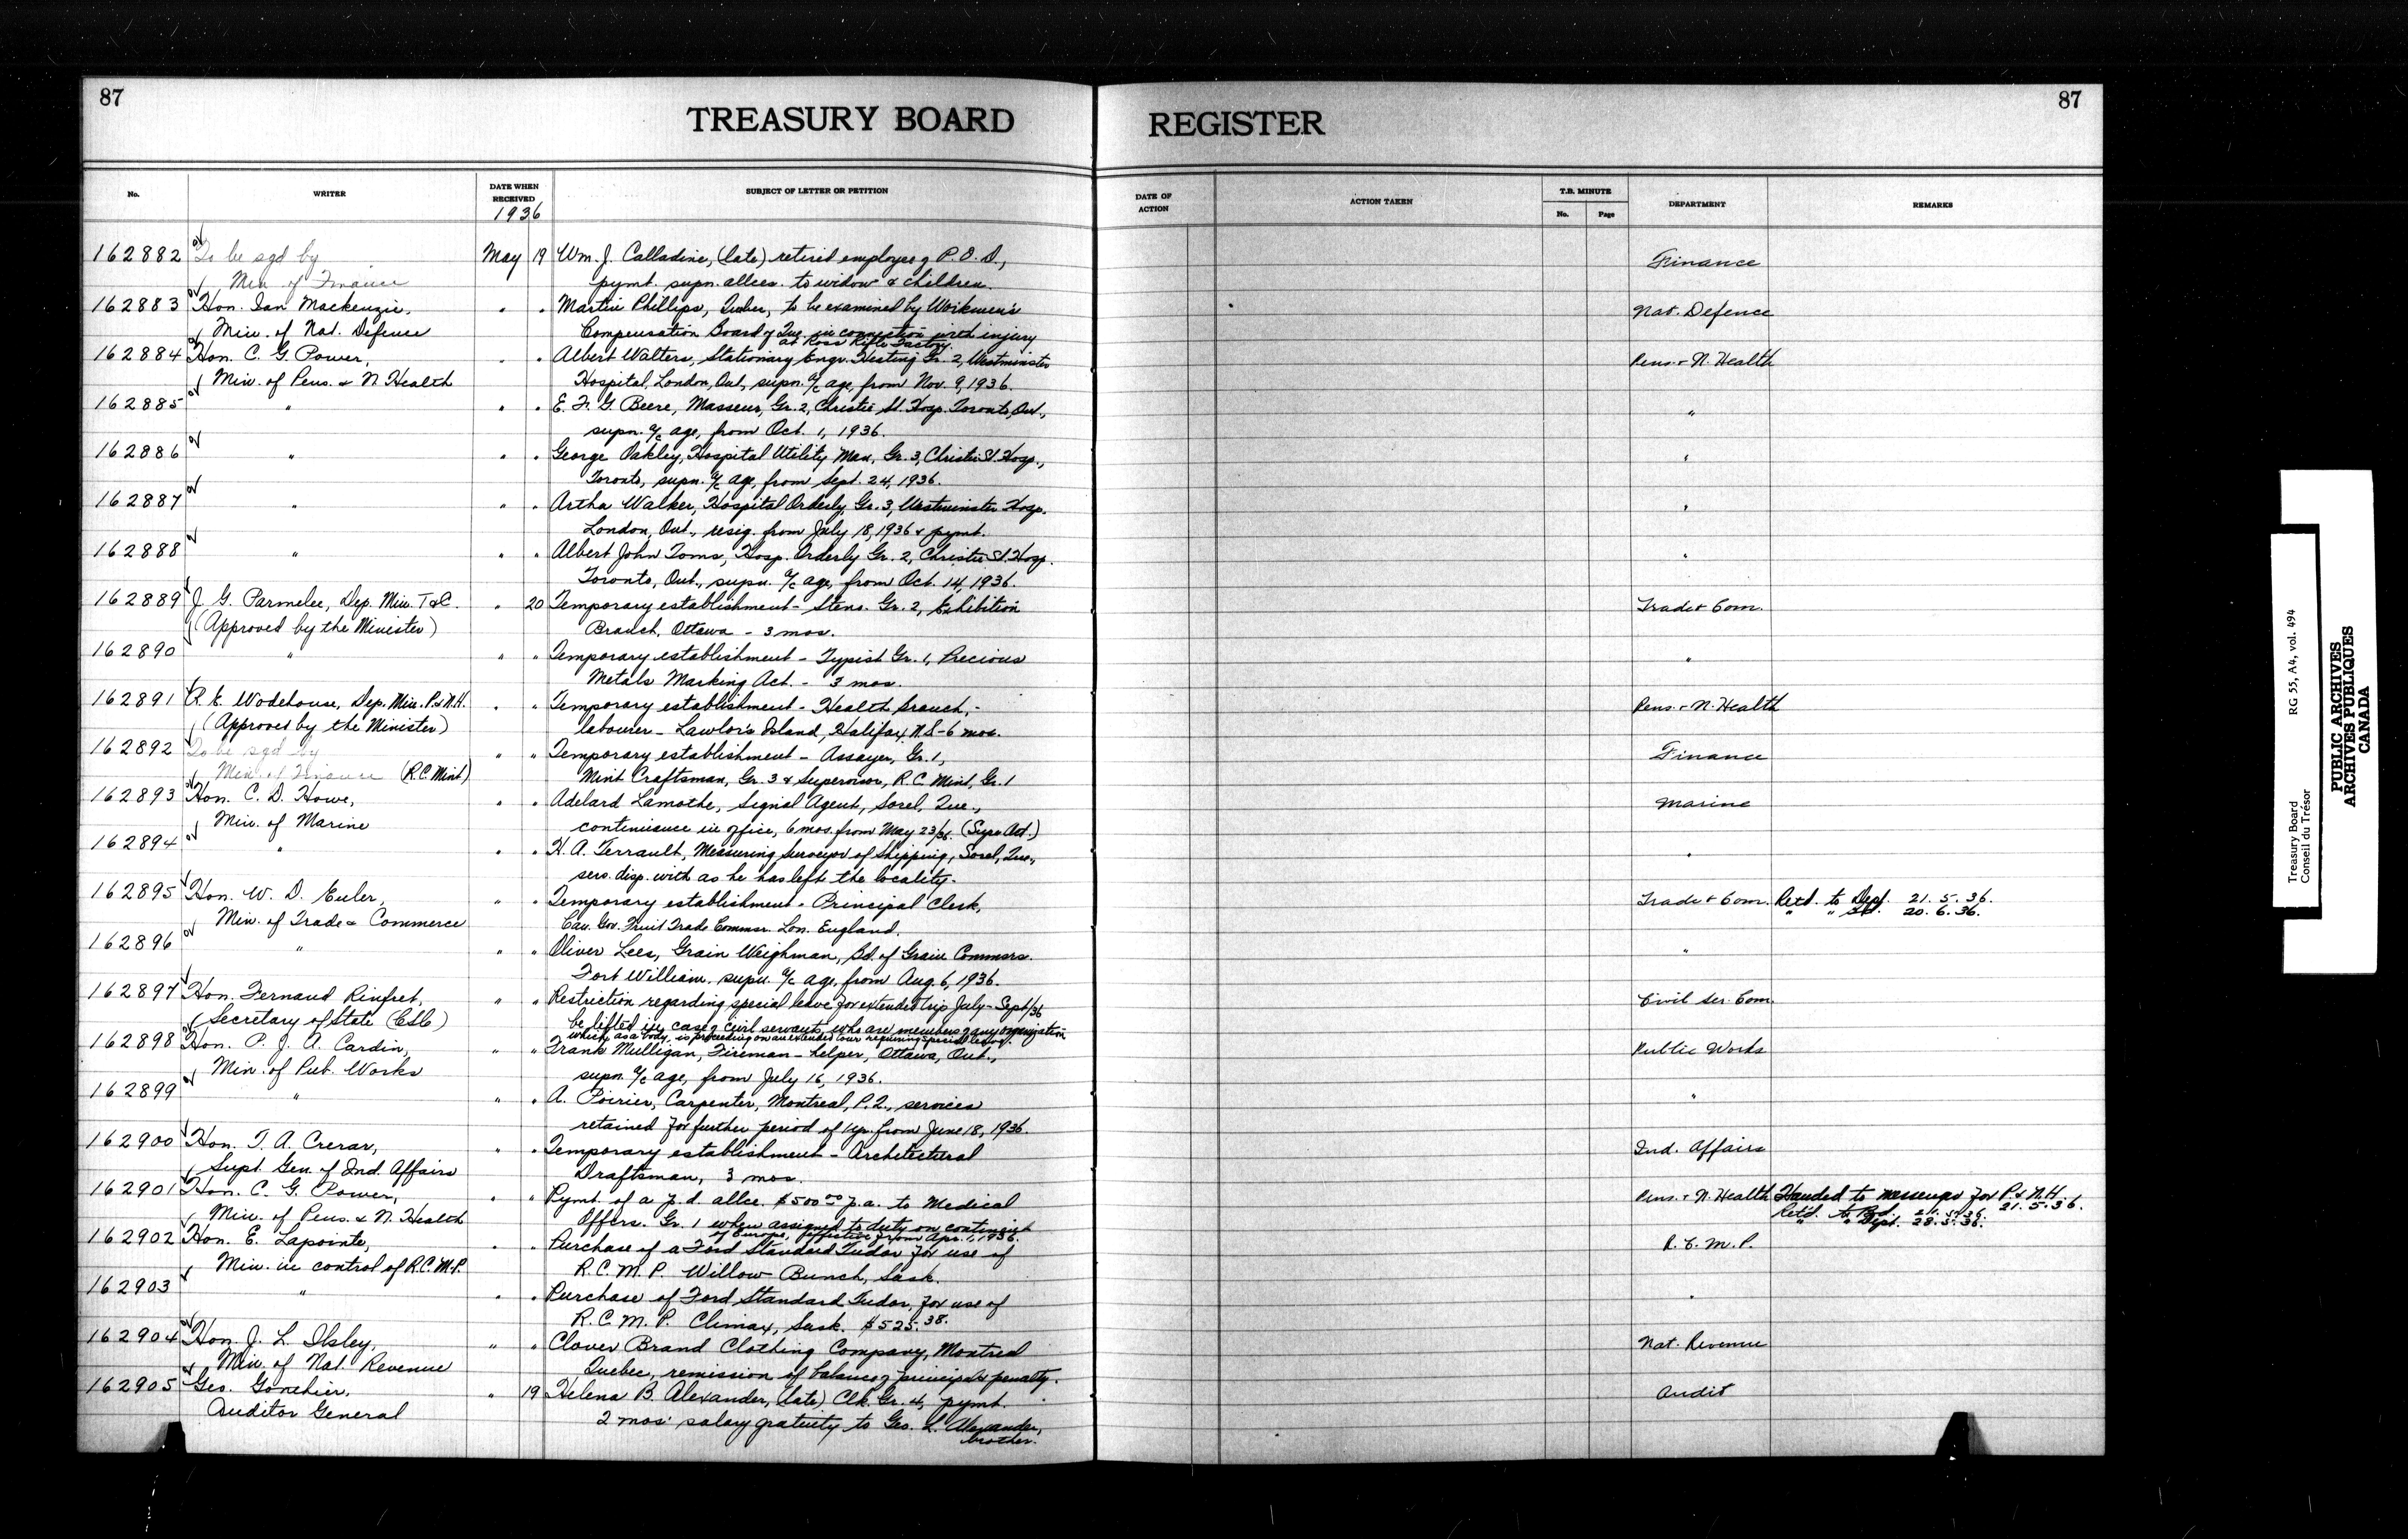 87
TREASURY BOARD
REGISTER
87
No.
WRITER
DATE WHEN RECEIVED
1936
SUBJECT OF LETTER OR PETITION
DATE OF ACTION
ACTION TAKEN
T.B. MINUTE
No.
Page
DEPARTMENT
REMARKS
162882 To be sgd by May 19 Wm. J. Calladine, (late) retired employee of P.O.D., Finance
Min. of Finance pymt. supn. allces. to widow & children.
162883 Hon. Ian Mackenzie, " " Martin Phillips, Quebec, to be examined by Workmen's Nat. Defence
Min. of Nat. Defence Compensation Board of Que. in connection with injury
at Ross Rifle Factory.
162884 Hon. C. G. Power, " " Albert Walters, Stationary Engr. Heating Gr. 2, Westminster Pens. & N. Health
Min. of Pens. & N. Health Hospital, London, Ont., supn. a/c age, from Nov. 9, 1936.
162885 " " " E. F. G. Beere, Masseur, Gr. 2, Christie St. Hosp. Toronto, Ont., "
supn. a/c age, from Oct. 1, 1936.
162886 " " " George Oakley, Hospital Utility Man, Gr. 3, Christie St. Hosp., "
Toronto, supn. a/c age, from Sept. 24, 1936.
162887 " " " Artha Walker, Hospital Orderly, Gr. 3, Westminster Hosp. "
London, Ont., resig. from July 18, 1936 & pymt.
162888 " " " Albert John Toms, Hosp. Orderly Gr. 2, Christie St. Hosp. "
Toronto, Ont., supn. a/c age, from Oct. 14, 1936.
162889 J. G. Parmelee, Dep. Min. T & C. " 20 Temporary establishment - Steno. Gr. 2, Exhibition Trade & Com.
(Approved by the Minister) Branch, Ottawa - 3 mos.
162890 " " " Temporary establishment - Typist Gr. 1, Precious "
Metals Marking Act. - 3 mos.
162891 R. E. Wodehouse, Dep. Min. P. & N.H. " " Temporary establishment - Health Branch, - Pens. & N. Health
(Approved by the Minister) labourer - Lawlor's Island, Halifax, N.S - 6 mos.
162892 To be sgd by " " Temporary establishment - Assayer, Gr. 1, Finance
Min. of Finance (R.C. Mint) Mint Craftsman, Gr. 3 & Supervisor, R.C. Mint, Gr. 1
162893 Hon. C. D. Howe, " " Adelard Lamothe, Signal Agent, Sorel, Que., Marine
Min. of Marine continuance in office, 6 mos. from May 23/36. (Supn Act.)
162894 " " " H. A. Terrault, Measuring Surveyor of Shipping, Sorel, Que., "
sers. disp. with as he has left the locality.
162895 Hon. W. D. Euler, " " Temporary establishment - Principal Clerk, Trade & Com. Retd. to Dept. 21. 5. 36.
Min. of Trade & Commerce Can. Gov. Fruit Trade Commsr. Lon. England. " " Bd. 20. 6. 36.
162896 " " " Oliver Lees, Grain Weighman, Bd. of Grain Commsrs. "
Fort William. supn. a/c age, from Aug. 6, 1936.
162897 Hon. Fernand Rinfret, " " Restriction regarding special leave for extended trip July - Sept/36 Civil Ser. Com.
Secretary of State (CSC) be lifted in case of civil servants who are members of any organization
which, as a body, is proceeding on an extended tour requiring special leave.
162898 Hon. P. J. A. Cardin, " " Frank Mulligan, Fireman - helper, Ottawa, Ont., Public Works
Min. of Pub. Works supn. a/c age, from July 16, 1936.
162899 " " " A. Poirier, Carpenter, Montreal, P.Q., services "
retained for further period of 1 yr. from June 18, 1936.
162900 Hon. T. A. Crerar, " " Temporary establishment - Architectural Ind. Affairs
Supt. Gen. of Ind. Affairs Draftsman, 3 mos.
162901 Hon. C. G. Power, " " Pymt. of a p. d. allce. $500.00 p.a. to Medical Pens. & N. Health Handed to messenger for P. & N.H. 21. 5. 36.
Min. of Pens. & N. Health Offcrs. Gr. 1 when assigned to duty on continent Retd. to Bd.
of Europe, effective from Apr. 1, 1936. " " Dept. 28. 5. 36.
162902 Hon. E. Lapointe, " " Purchase of a Ford Standard Tudor for use of R. C. M. P.
Min. in control of R.C.M.P. R.C.M.P. Willow Bunch, Sask.
162903 " " " Purchase of Ford Standard Tudor, for use of "
R.C.M.P. Climax, Sask. $525.38.
162904 Hon. J. L. Ilsley, " " Clover Brand Clothing Company, Montreal Nat. Revenue
Min. of Nat. Revenue Quebec, remission of balance of principal & penalty.
162905 Geo. Gonthier, " 19 Helena B. Alexander, (late) Clk. Gr. 4, pymt. Audit
Auditor General 2 mos' salary gratuity to Geo. L. Alexander,
brother.
Treasury Board RG 55, A4, vol. 494
Conseil du Trésor
PUBLIC ARCHIVES
ARCHIVES PUBLIQUES
CANADA